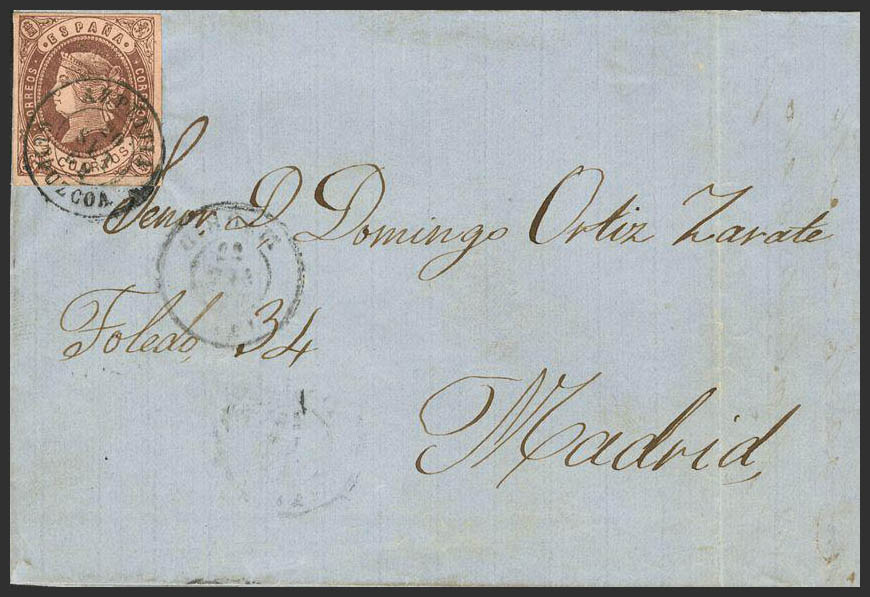 · ESPAÑA ·
CORREOS
CUARTOS.
GUIPUZCOA
Señor, D Domingo Ortiz Zarate
Toledo, 34
Madrid,